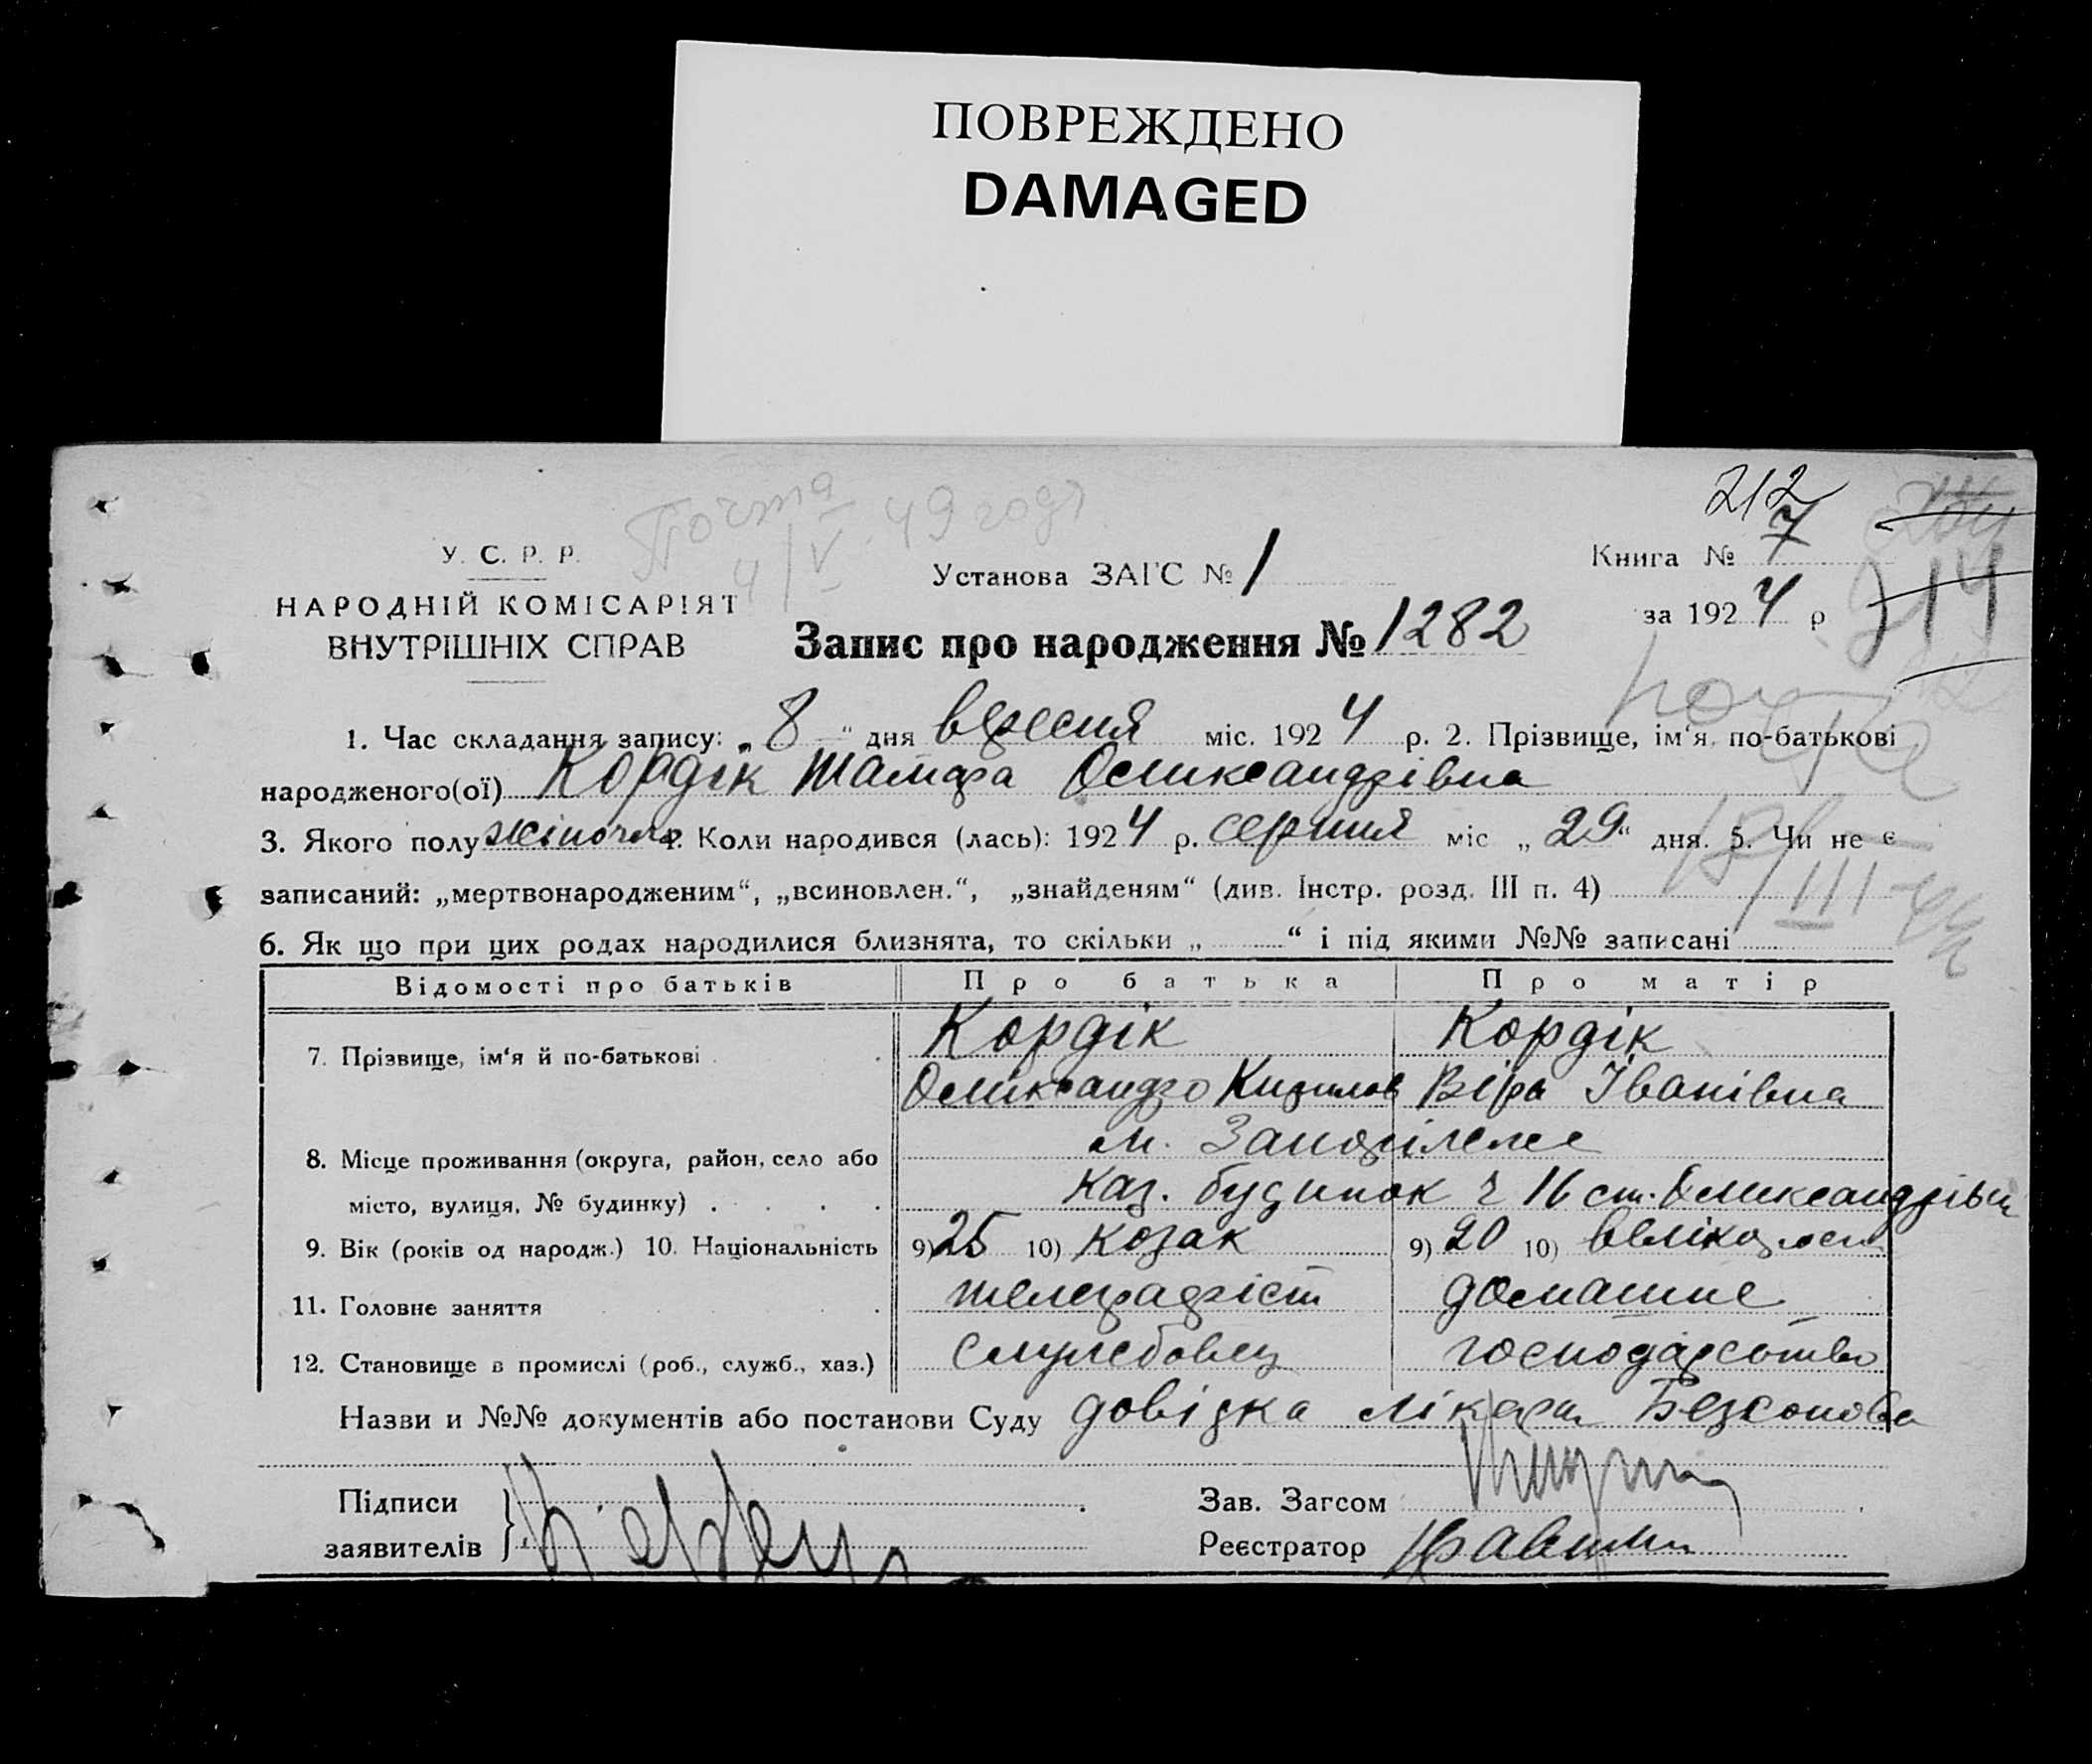 ПОВРЕЖДЕНО
DAMAGED
212
Почта
4/V 49 годъ
У. С. Р. Р.
НАРОДНІЙ КОМІСАРІЯТ
ВНУТРІШНІХ СПРАВ
Установа ЗАГС № 1
Книга № 7
за 1924 р
214
Запис про народження № 1282
1. Час складання запису: „8“ дня вересня міс. 1924 р. 2. Прізвище, ім‘я, по-батькові
народженого(ої) Кордік Тамара Олександрівна
3. Якого полу жіночля 4. Коли народився (лась): 1924 р. серпня міс „29“ дня. 5. Чи не є
записаний: „мертвонародженим“, „всиновлен.“, „знайденям“ (див. Інстр. розд. III п. 4)
6. Як що при цих родах народилися близнята, то скільки „ “ і під якими №№ записані
Відомості про батьків Про батька Про матір
7. Прізвище, ім‘я й по-батькові Кордік Кордік
Олександр Кирилов Віра Іванівна
8. Місце проживання (округа, район, село або м. Запоріжже
місто, вулиця, № будинку) Каз. будинок ч 16 ст. Олександрівськ
9. Вік (років од народж.) 10. Національність 9) 25 10) козак 9) 20 10) велікорос
11. Головне заняття телеграфіст домашне
12. Становище в промислі (роб., служб., хаз.) службовец господарство
Назви и №№ документів або постанови Суду довідка лікаря Безсонова
Підписи Зав. Загсом
заявителів Реєстратор